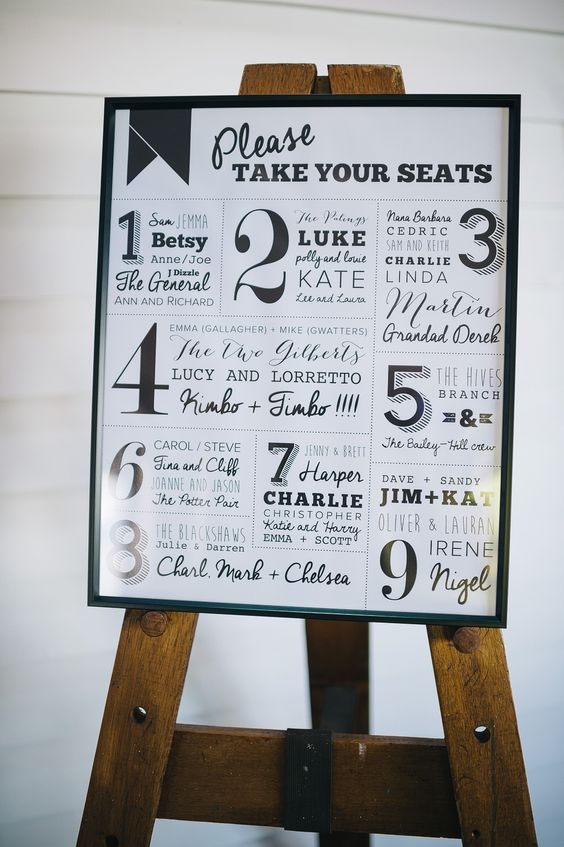 Please
TAKE YOUR SEATS
1
Sam JEMMA
Betsy
Anne/Joe
J Dizzle
The General
ANN AND RICHARD
2
The Palings
LUKE
polly and louie
KATE
Lee and Laura
3
Nana Barbara
CEDRIC
SAM AND KEITH
CHARLIE
LINDA
Martin
Grandad Derek
4
EMMA (GALLAGHER) + MIKE (GWATTERS)
The Two Gilberts
LUCY AND LORRETTO
Kimbo + Timbo !!!!
5
THE HIVES
BRANCH
&
The Bailey-Hill crew
6
CAROL / STEVE
Tina and Cliff
JOANNE AND JASON
The Potter Pair
7
JENNY & BRETT
Harper
CHARLIE
CHRISTOPHER
Katie and Harry
EMMA + SCOTT
8
THE BLACKSHAWS
Julie & Darren
Charl, Mark + Chelsea
DAVE + SANDY
JIM+KAT
OLIVER & LAURAN
9
IRENE
Nigel